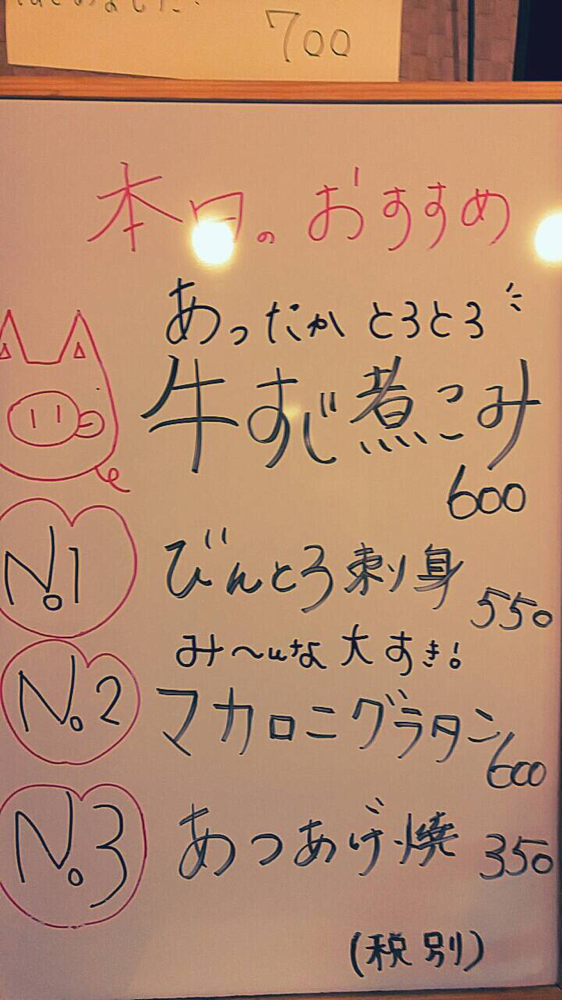 700
本日のおすすめ
あったか とろとろ
牛すじ煮こみ
600
No.1 びんとろ刺身 550
み〜んな大すき!
No.2 マカロニグラタン 600
No.3 あつあげ焼 350
(税別)